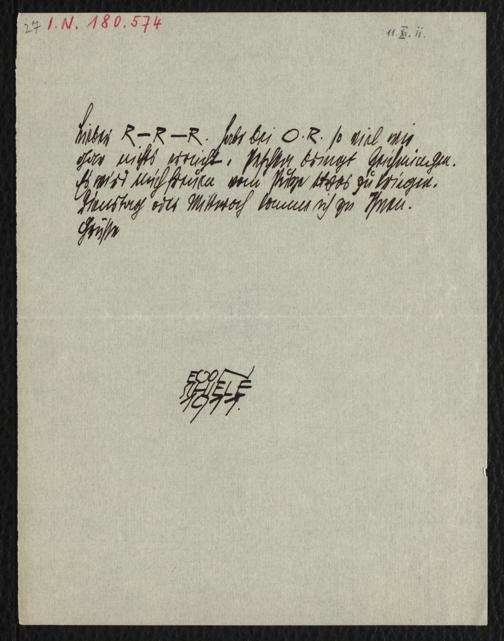 27 I.N. 180.574
11. XI. 11.
Lieber R–R–R. habe bei O.R. so viel wie
gar nichts erreicht. Peschka bringt Zeichnungen.
Es wird mich freuen vom etwas zu kriegen.
Dienstag oder Mittwoch komme ich zu Ihnen.
Grüße
EGON
SCHIELE
1911.